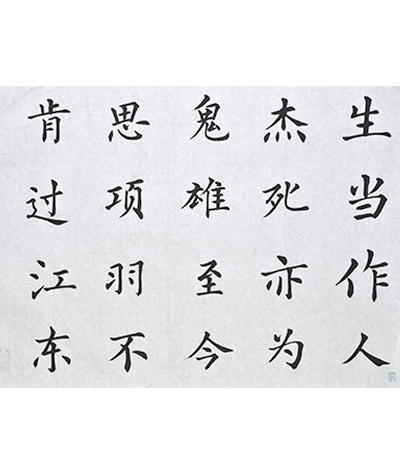 生当作人
杰死亦为
鬼雄至今
思项羽不
肯过江东